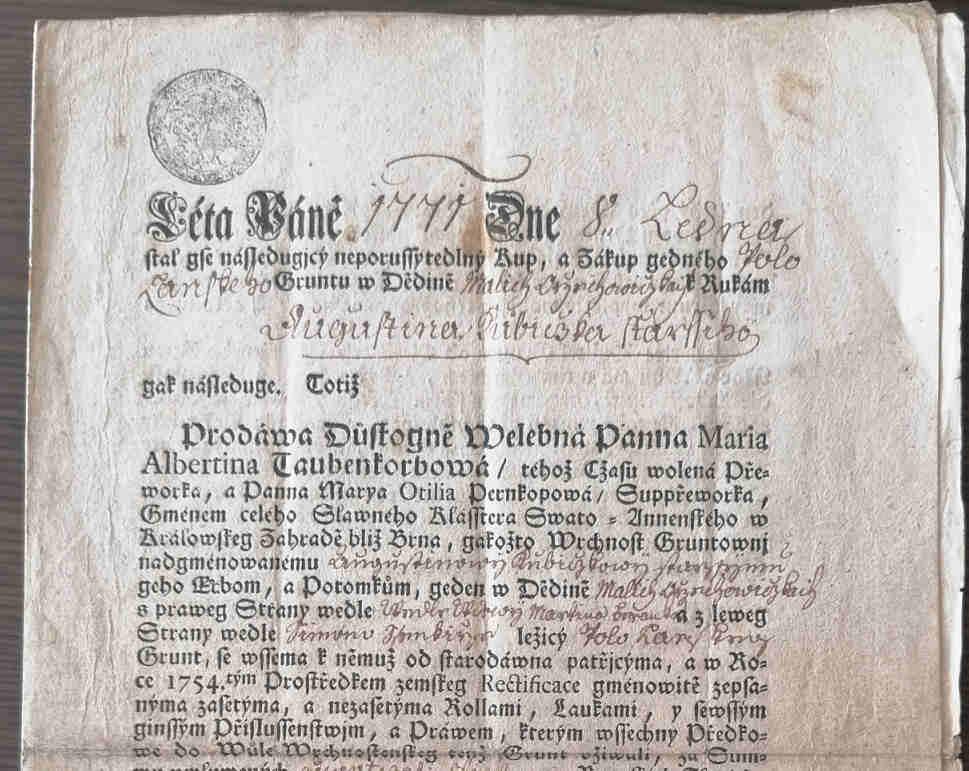 Léta Páně 1771 Dne 8. Ledna
stal gse následugjcý neporussytedlný Kup, a Zákup gedného Polo
Lanskeho Gruntu w Dědině Malich k Rukám
Augustina Kubiczka starssiho
gak následuge. Totiž
Prodáwa Důstogně Welebná Panna Maria
Albertina Taubenkorbowá / tehož Cžasu wolená Pře-
worka, a Panna Marya Otilia Pernkopowá / Suppřeworka,
Gménem celého Slawného Klásstera Swato-Annenského w
Králowskeg Zahradě bliž Brna, gakožto Wrchnost Gruntownj
nadgménowanému Augustinowy Kubiczkowy starssymu
geho Erbom, a Potomkům, geden w Dědině Malich
s praweg Strany wedle Martina a z leweg
Strany wedle Simono ležicý Polo Lansky
Grunt, se wssema k němuž od starodáwna patřjcýma, a w Ro-
ce 1754.tým Prostředkem zemskeg Rectificace gménowitě zepsa-
nýma zasetýma, a nezasetýma Rollami, Laukami, y sewssým
ginssým Přjslussenstwjm, a Práwem, kterým wssechny Předko-
we do Wůle Wrchnostenskeg tenž Grunt vžiwali, za Sum-